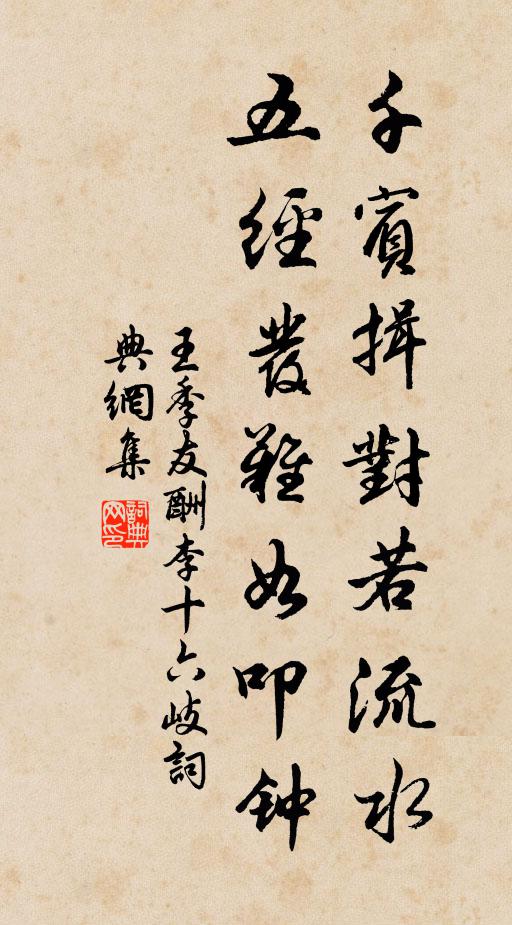 千賓揖對若流水
五經發難如叩钟
王季友酬李十六岐詞
典網集
詞典
网印